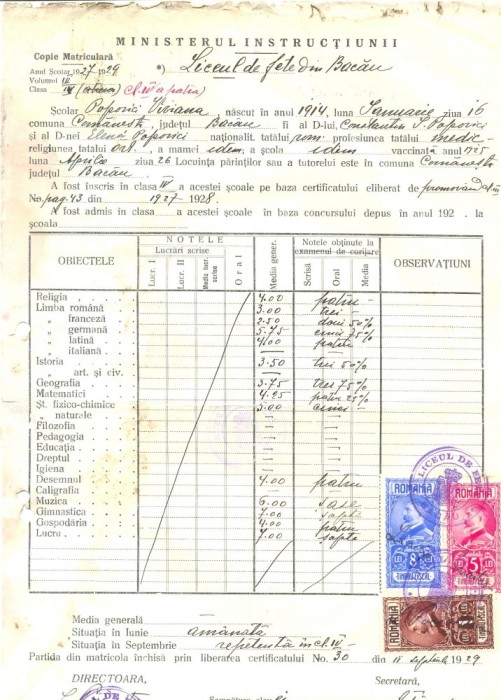 MINISTERUL INSTRUCȚIUNII
Copie Matriculară
Anul Școlar 1927-1929 *) Liceul de fete din Bacău
Volumul III
Clasa IV Cl. IV a patra)
Școlar Popovici Viziana, născut în anul 1914, luna Ianuarie ziua 16
comuna Comănești, județul Bacău fi al D-lui, Constantin S. Popovici
și al D-nei Elena Popovici naționalit. tatălui rom. profesiunea tatălui medic
religiunea tatălui ort., a mamei idem, a școla idem vaccinată anul 1925
luna Aprilie ziua 26 Locuința părinților sau a tutorelui este în comuna Comănești
județul Bacău.
A fost înscris în clasa IV a acestei școale pe baza certificatului eliberat de promovând cl. III
No. pag. 43 din 1927 - 1928.
A fost admis în clasa a acestei școale în baza concursului depus în anul 192 . la
școala
OBIECTELE
NOTELE
Lucrări scrise
Lucr. I
Lucr. II
Media lucr. scrise
Oral
Media gener.
Notele obținute la examenul de corijare
Scrisă
Oral
Media
OBSERVAȚIUNI
Religia 4.00 patru -
Limba română 3.00 trei -
" franceză 2.50 doui 50%
" germană 5.75 cinci 75%
" latină 4.00 patru
" italiană —
Istoria 3.50 trei 50%
" art. și civ. —
Geografia 3.75 trei 75%
Matematici 4.25 patru 25%
Șt. fizico-chimice 5.00 cinci -
" naturale —
Filozofia
Pedagogia
Educația
Dreptul
Igiena
Desemnul 4.00 patru
Caligrafia —
Muzica 6.00 șase
Gimnastica 7.00 șapte
Gospodăria 4.00 patru
Lucru 7.00 șapte
LICEUL DE FE
ROMANIA
8
LEI
TIMBRU FISCAL
ROMANIA
5
LEI
TIMBRU FISCAL
ROMANIA
1
Media generală
Situația în Iunie amânată
Situația în Septembrie repetentă în cl. IV -
Partida din matricola închisă prin liberarea certificatului No. 30 din 11 Septembrie 1929
DIRECTOARA,
Secretara,